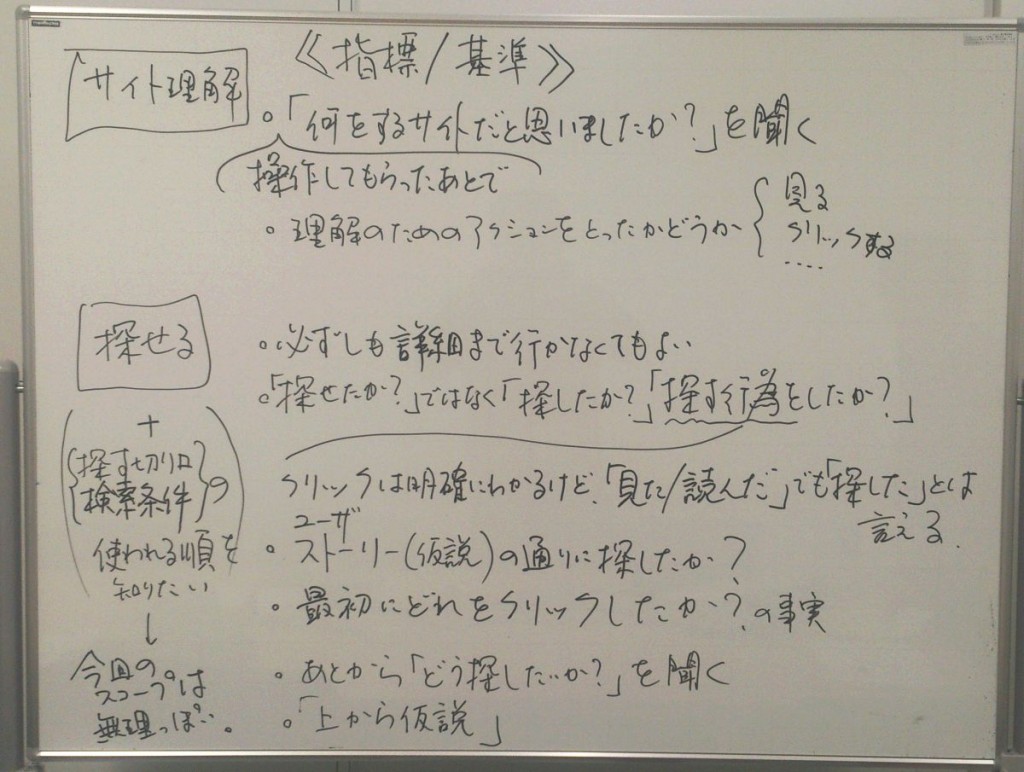 《指標/基準》
サイト理解
。「何をするサイトだと思いましたか?」を聞く
操作してもらったあとで
。理解のためのアクションをとったかどうか
見る
クリックする
....
探せる
。必ずしも詳細まで行かなくてもよい
。「探せたか?」ではなく「探したか?」「探す行為をしたか?」
クリックは明確にわかるけど、「見た/読んだ」でも「探した」とは
言える.
+
探す切り口
検索条件
の
使われる順を
知りたい
↓
今回の
スコープは
無理っぽい。
ユーザ
。ストーリー(仮説)の通りに探したか?
。最初にどれをクリックしたか?の事実
。あとから「どう探したか?」を聞く
。「上から仮説」